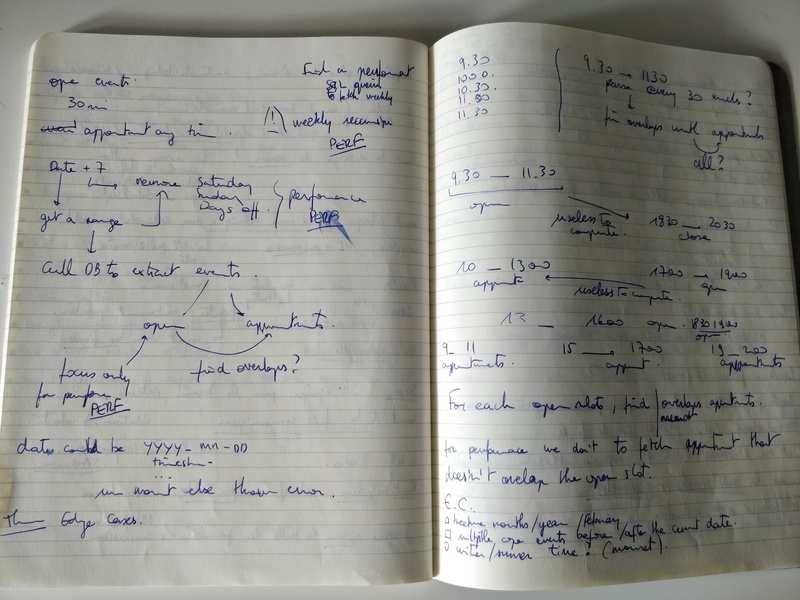 open events.
30 min
event appointment any time.
Find a performant
SQL query
to fetch weekly
(!) weekly recursive
PERF
Date + 7
remove Saturday
Sunday
Days off.
performance
PERF
get a range
Call DB to extract events.
open appointments.
focus only
for perform
PERF
find overlaps?
date could be YYYY-MM-DD
timestam
...
else throw error.
Edge Cases.
9.30
10.00.
10.30.
11.00
11.30
9.30 → 1130
parse every 30 minutes?
find overlaps with appointments
all?
9.30 — 11.30
open
useless to
compute.
1830 — 2030
close
10 — 1300
appoint
useless to compute.
1700 → 1900
open
13 — 1600 open. 1830 1900
open
9 - 11
appointments.
15 → 1700
appoint.
19 - 200
appointments
For each open slots, find overlaps appointments.
moment
for performance we don't to fetch appointment that
doesn't overlap the open slot.
E.C.
between months/year /february
multiple open events before/after the current date.
winter/summer time? (moment).